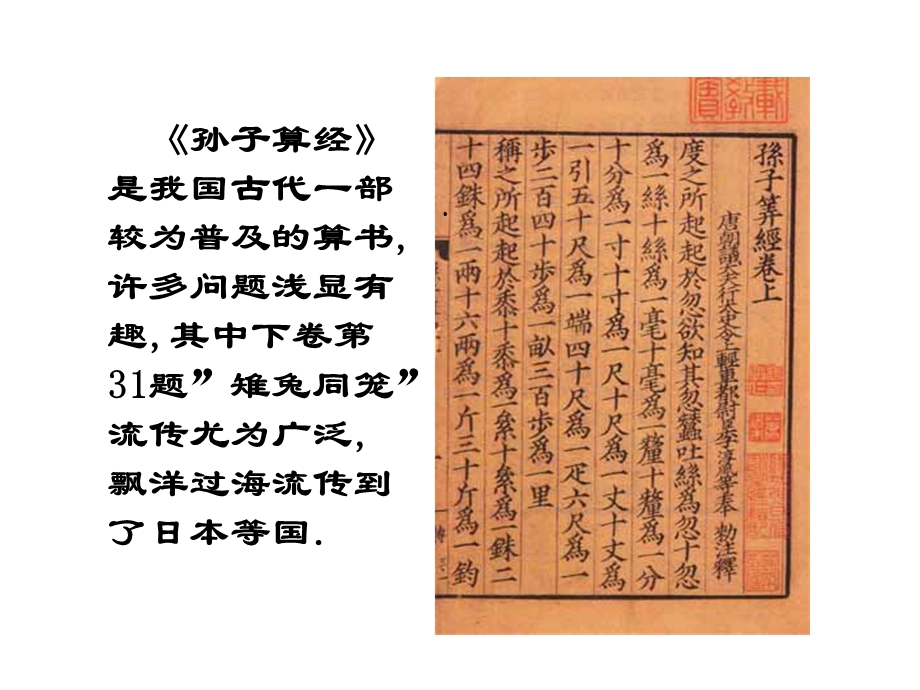 《孙子算经》
是我国古代一部
较为普及的算书,
许多问题浅显有
趣,其中下卷第
31题”雉兔同笼”
流传尤为广泛,
飘洋过海流传到
了日本等国.
孫子筭經卷上
唐朝議大夫行太史令上輕車都尉臣李淳風等奉 勑注釋
度之所起起於忽欲知其忽蠶吐絲爲忽十忽
爲一絲十絲爲一毫十毫爲一釐十釐爲一分
十分爲一寸十寸爲一尺十尺爲一丈十丈爲
一引五十尺爲一端四十尺爲一疋六尺爲一
步二百四十步爲一畝三百步爲一里
稱之所起起於黍十黍爲一絫十絫爲一銖二
十四銖爲一兩十六兩爲一斤三十斤爲一鈞